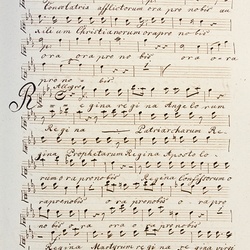 Consolatrix afflictorum ora pro nobis au
xilium Christianorum ora pro nobis
ora ora pro nobis ora
pro nobis
Allegro
Regina regina Angelorum
Regina Patriarcharum Re-
gina Prophetarum Regina Apostolo-
rum ora pro nobis Regina Confessorum o
ra pro nobis ora pro nobis ora pro
Regina Martyrum regina